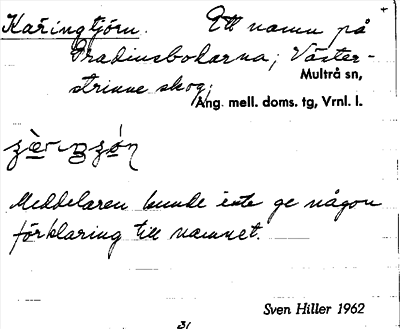 Käringtjörn. Ett namn på
Gradinsbodarna, Väster-
Multrå sn,
strinne skog;
Ång. mell. doms. tg, Vrnl. l.
Meddelaren kunde inte ge någon
förklaring till namnet.
Sven Hiller 1962
31